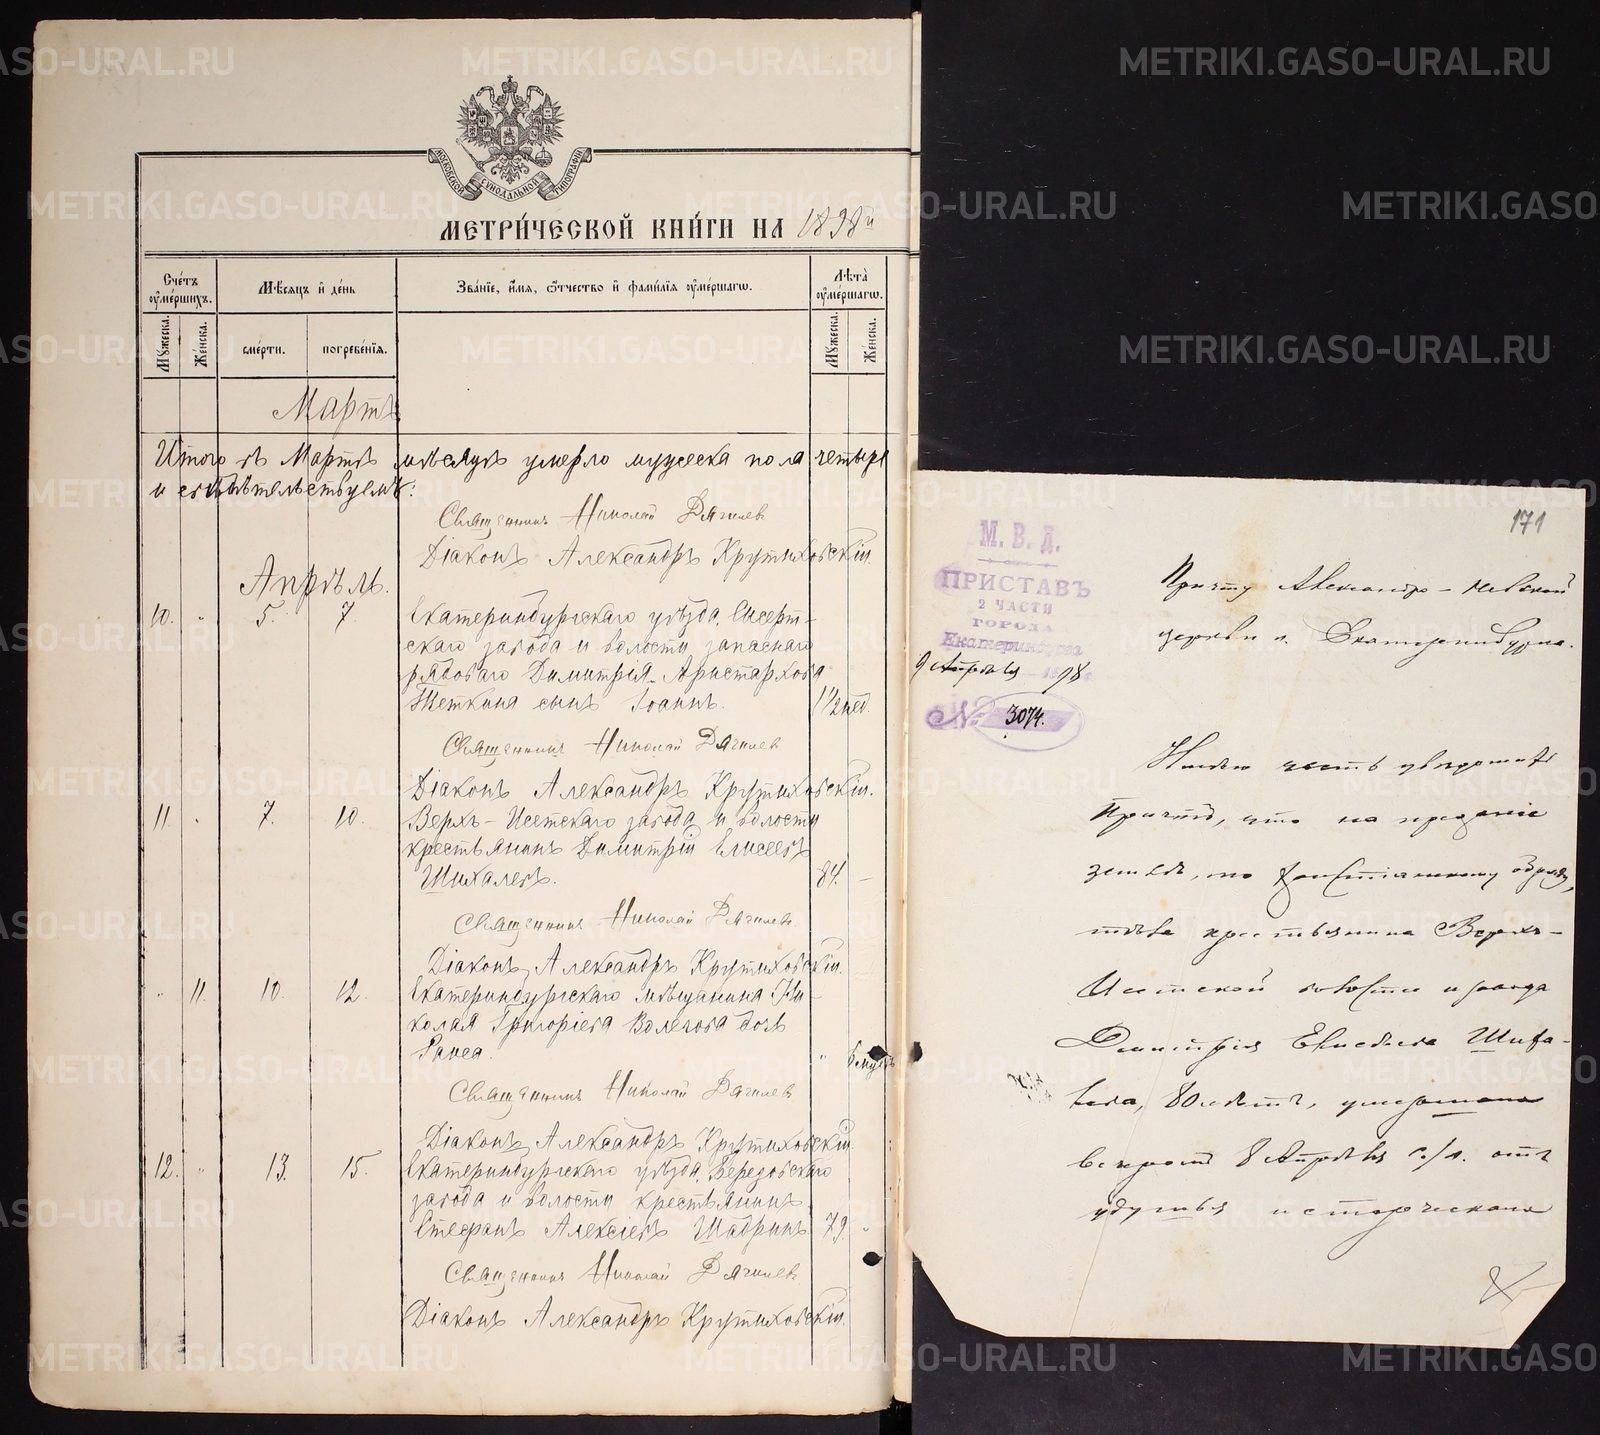 МОСКОВСКОЙ СУНОДАЛЬНОЙ ТИПОГРАФІИ
МЕТРИ́ЧЕСКОЙ КНИ́ГИ НА 1898й
Сче́тъ оуме́ршихъ.
Мѣсяцъ и де́нь
Зва́нїе, и́мя, о́тчество и фами́лїя оуме́ршагѡ.
Лѣта̀ оуме́ршагѡ.
Му́жеска.
Же́нска.
сме́рти.
погребе́нїя.
Му́жеска.
Же́нска.
Мартъ
Итого въ Мартѣ мѣсяцѣ умерло мужеска пола четыре
и свидѣтельствуемъ:
Священникъ Николай Дягилев
Діаконъ Александръ Крутиховскій.
Апрѣль.
10. " 5. 7. Екатеринбургскаго уѣзда, Сысерт-
скаго завода и волости запаснаго
рядоваго Димитрія Аристархова
Щеткина сынъ Іоаннъ. 1½ нед.
Священникъ Николай Дягилев
Діаконъ Александръ Крутиховскій.
11. " 7. 10. Верхъ-Исетскаго завода и волости
крестьянинъ Димитрій Елисеевъ
Шихалевъ. 84. —
Священникъ Николай Дягилев
Діаконъ Александръ Крутиховскій.
" 11. 10. 12. Екатеринбургскаго мѣщанина Ни-
колая Григоріева Волегова дочь
Раиса. " 6 мѣс.
Священникъ Николай Дягилев
Діаконъ Александръ Крутиховскій
12. " 13. 15. Екатеринбургскаго уѣзда, Березовскаго
завода и волости крестьянинъ
Стефанъ Алексіевъ Шабринъ 79. "
Священникъ Николай Дягилев
Діаконъ Александръ Крутиховскій.
171
М. В. Д.
ПРИСТАВЪ
2 ЧАСТИ
ГОРОДА
Екатеринбурга
9 Апрѣля 1898 г.
№ 3074.
Причту Александро-Невской
церкви г. Екатеринбурга.
Имѣю честь увѣдомить
Причтъ, что на преданіе
землѣ, по христіанскому обряду,
тѣла крестьянина Верхъ-
Исетской волости и завода
Димитрія Елисѣева Шиха-
лева, 80 лѣтъ, умершаго
8 Апрѣля с/г. отъ
METRIKI.GASO-URAL.RU